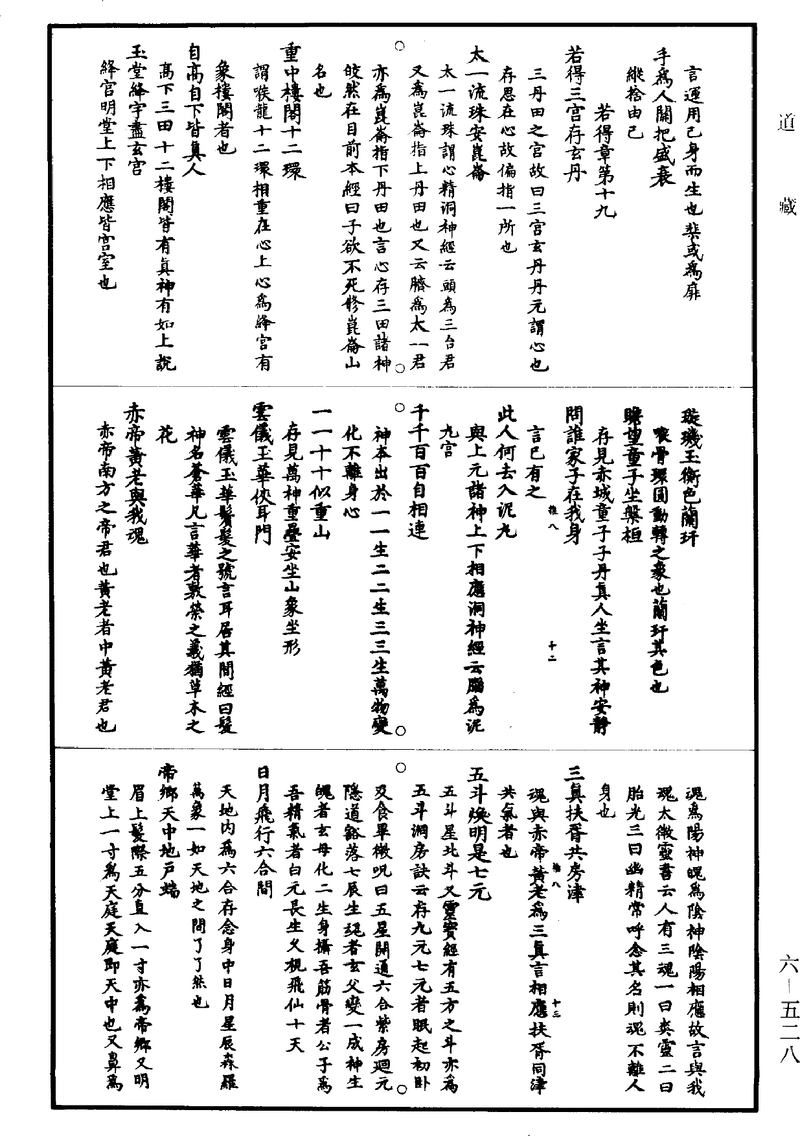 道藏
言運用己身而生也裴或為靡
手為人關把盛衰
縱捨由己
若得章第十九
若得三宮存玄丹
三丹田之宮故曰三宮玄丹丹元謂心也
存思在心故偏指一所也
太一流珠安崑崙
太一流珠謂心精洞神經云頭為三台君
又為崑崙指上丹田也又云臍為太一君
亦為崑崙指下丹田也言心存三田諸神
皎然在目前本經曰子欲不死修崑崙山
名也
重中樓閣十二環
謂喉龍十二環相重在心上心為絳宮有
象樓閣者也
自高自下皆真人
高下三田十二樓閣皆有真神有如上說
玉堂絳宇盡玄宮
絳宮明堂上下相應皆宮室也
璇璣玉衡色蘭玕
喉骨環圓動轉之象也蘭玕其色也
瞻望童子坐槃桓
存見赤城童子子丹真人坐言其神安靜
問誰家子在我身
言己有之
此人何去入泥丸
與上元諸神上下相應洞神經云腦為泥
九宮
千千百百自相連
神本出於一一生二二生三三生萬物變
化不離身心
一一十十似重山
存見萬神重疊安坐山象坐形
雲儀玉華俠耳門
雲儀玉華鬢髮之號言耳居其間經曰髮
神名蒼華凡言華者敷榮之義猶草木之
花
赤帝黃老與我魂
赤帝南方之帝君也黃老者中黃老君也
魂為陽神魄為陰神陰陽相應故言與我
魂太微靈書云人有三魂一曰爽靈二曰
胎光三曰幽精常呼念其名則魂不離人
身也
三真扶胥共房津
魂與赤帝黃老為三真言相應扶胥同津
共氣者也
五斗煥明是七元
五斗星北斗又靈寶經有五方之斗亦為
五斗洞房訣云存九元七元者眠起初臥
及食畢微呪曰五星開道六合紫房迴元
隱道豁落七辰生魂者玄父變一成神生
魄者玄母化二生身攝吾筋骨者公子為
吾精氣者白元長生久視飛仙十天
日月飛行六合間
天地內為六合存念身中日月星辰森羅
萬象一如天地之間了了然也
帝鄉天中地戶端
眉上髮際五分直入一寸亦為帝鄉又明
堂上一寸為天庭天庭即天中也又鼻為
六－五二八